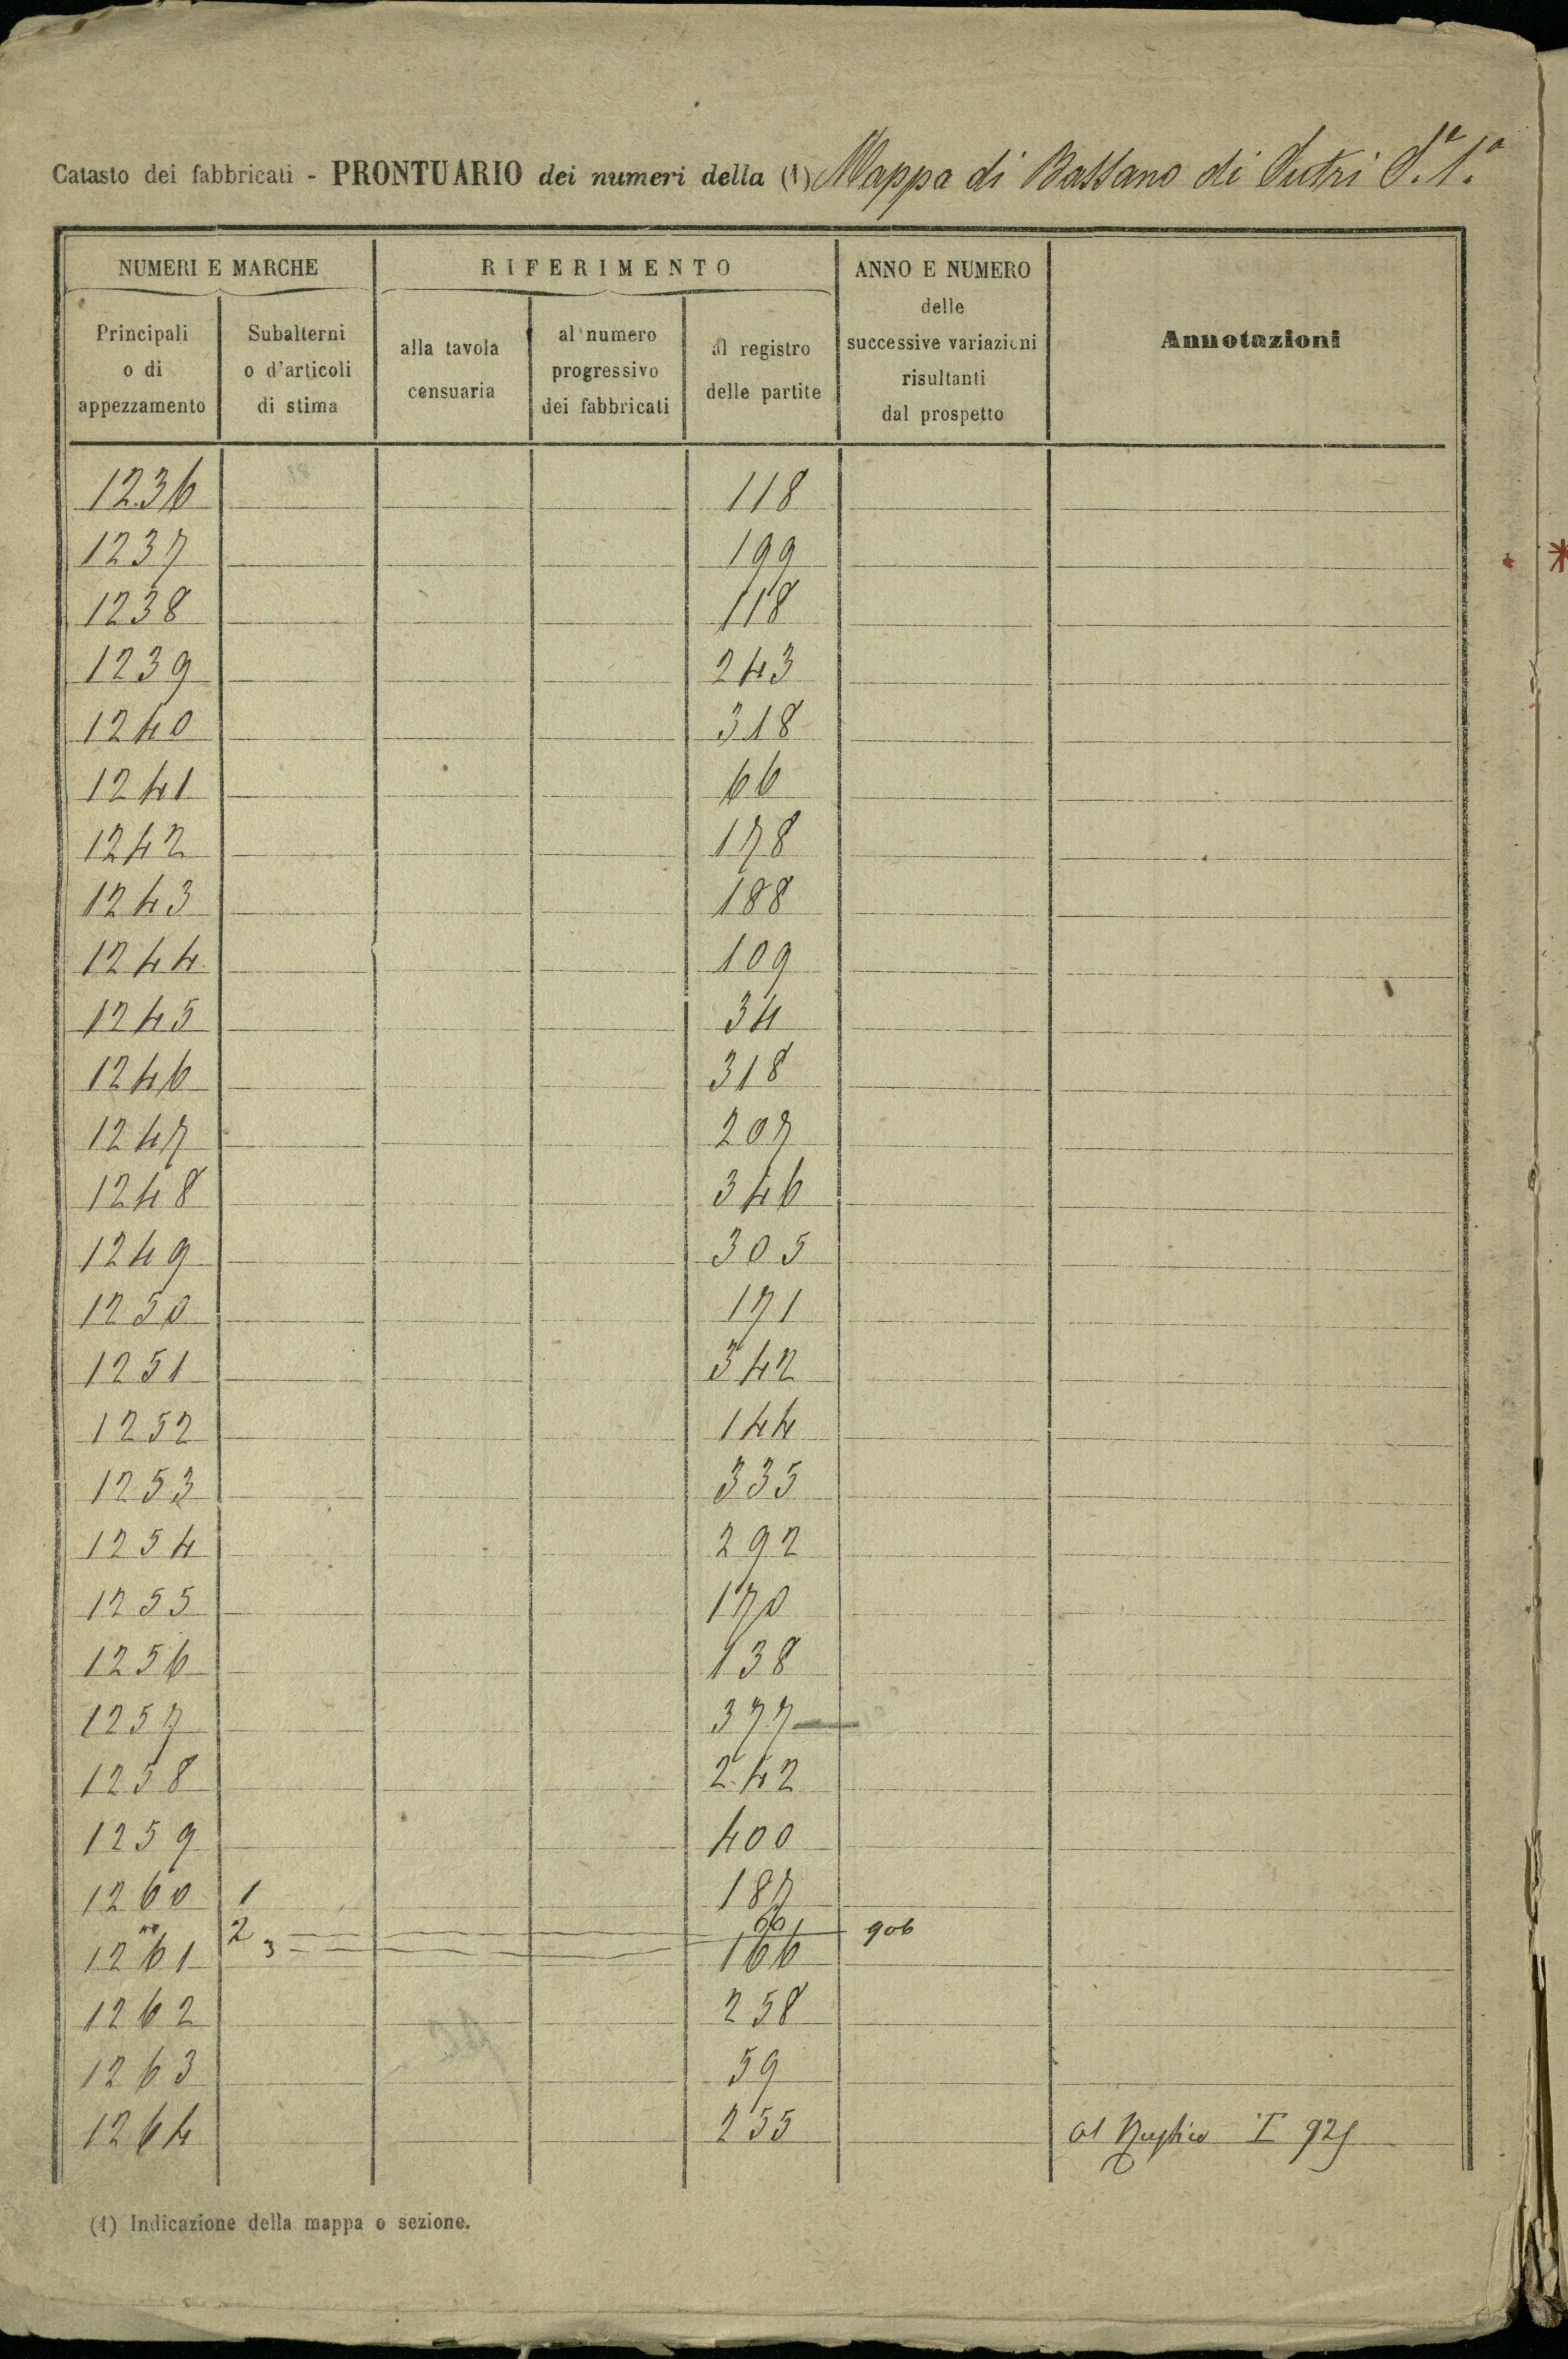 Catasto dei fabbricati - PRONTUARIO dei numeri della (1) Mappa di Bassano di Sutri S.ª 1.ª
NUMERI E MARCHE
RIFERIMENTO
ANNO E NUMERO
delle
successive variazioni
risultanti
dal prospetto
Annotazioni
Principali
o di
appezzamento
Subalterni
o d'articoli
di stima
alla tavola
censuaria
al numero
progressivo
dei fabbricati
al registro
delle partite
1236 118
1237 199
1238 118
1239 243
1240 318
1241 66
1242 178
1243 188
1244 109
1245 34
1246 318
1247 207
1248 346
1249 305
1250 171
1251 342
1252 144
1253 335
1254 292
1255 170
1256 138
1257 377
1258 242
1259 400
1260 1 187
2 906
3
1261 166
1262 258
1263 59
1264 255 al I 925
(1) Indicazione della mappa o sezione.